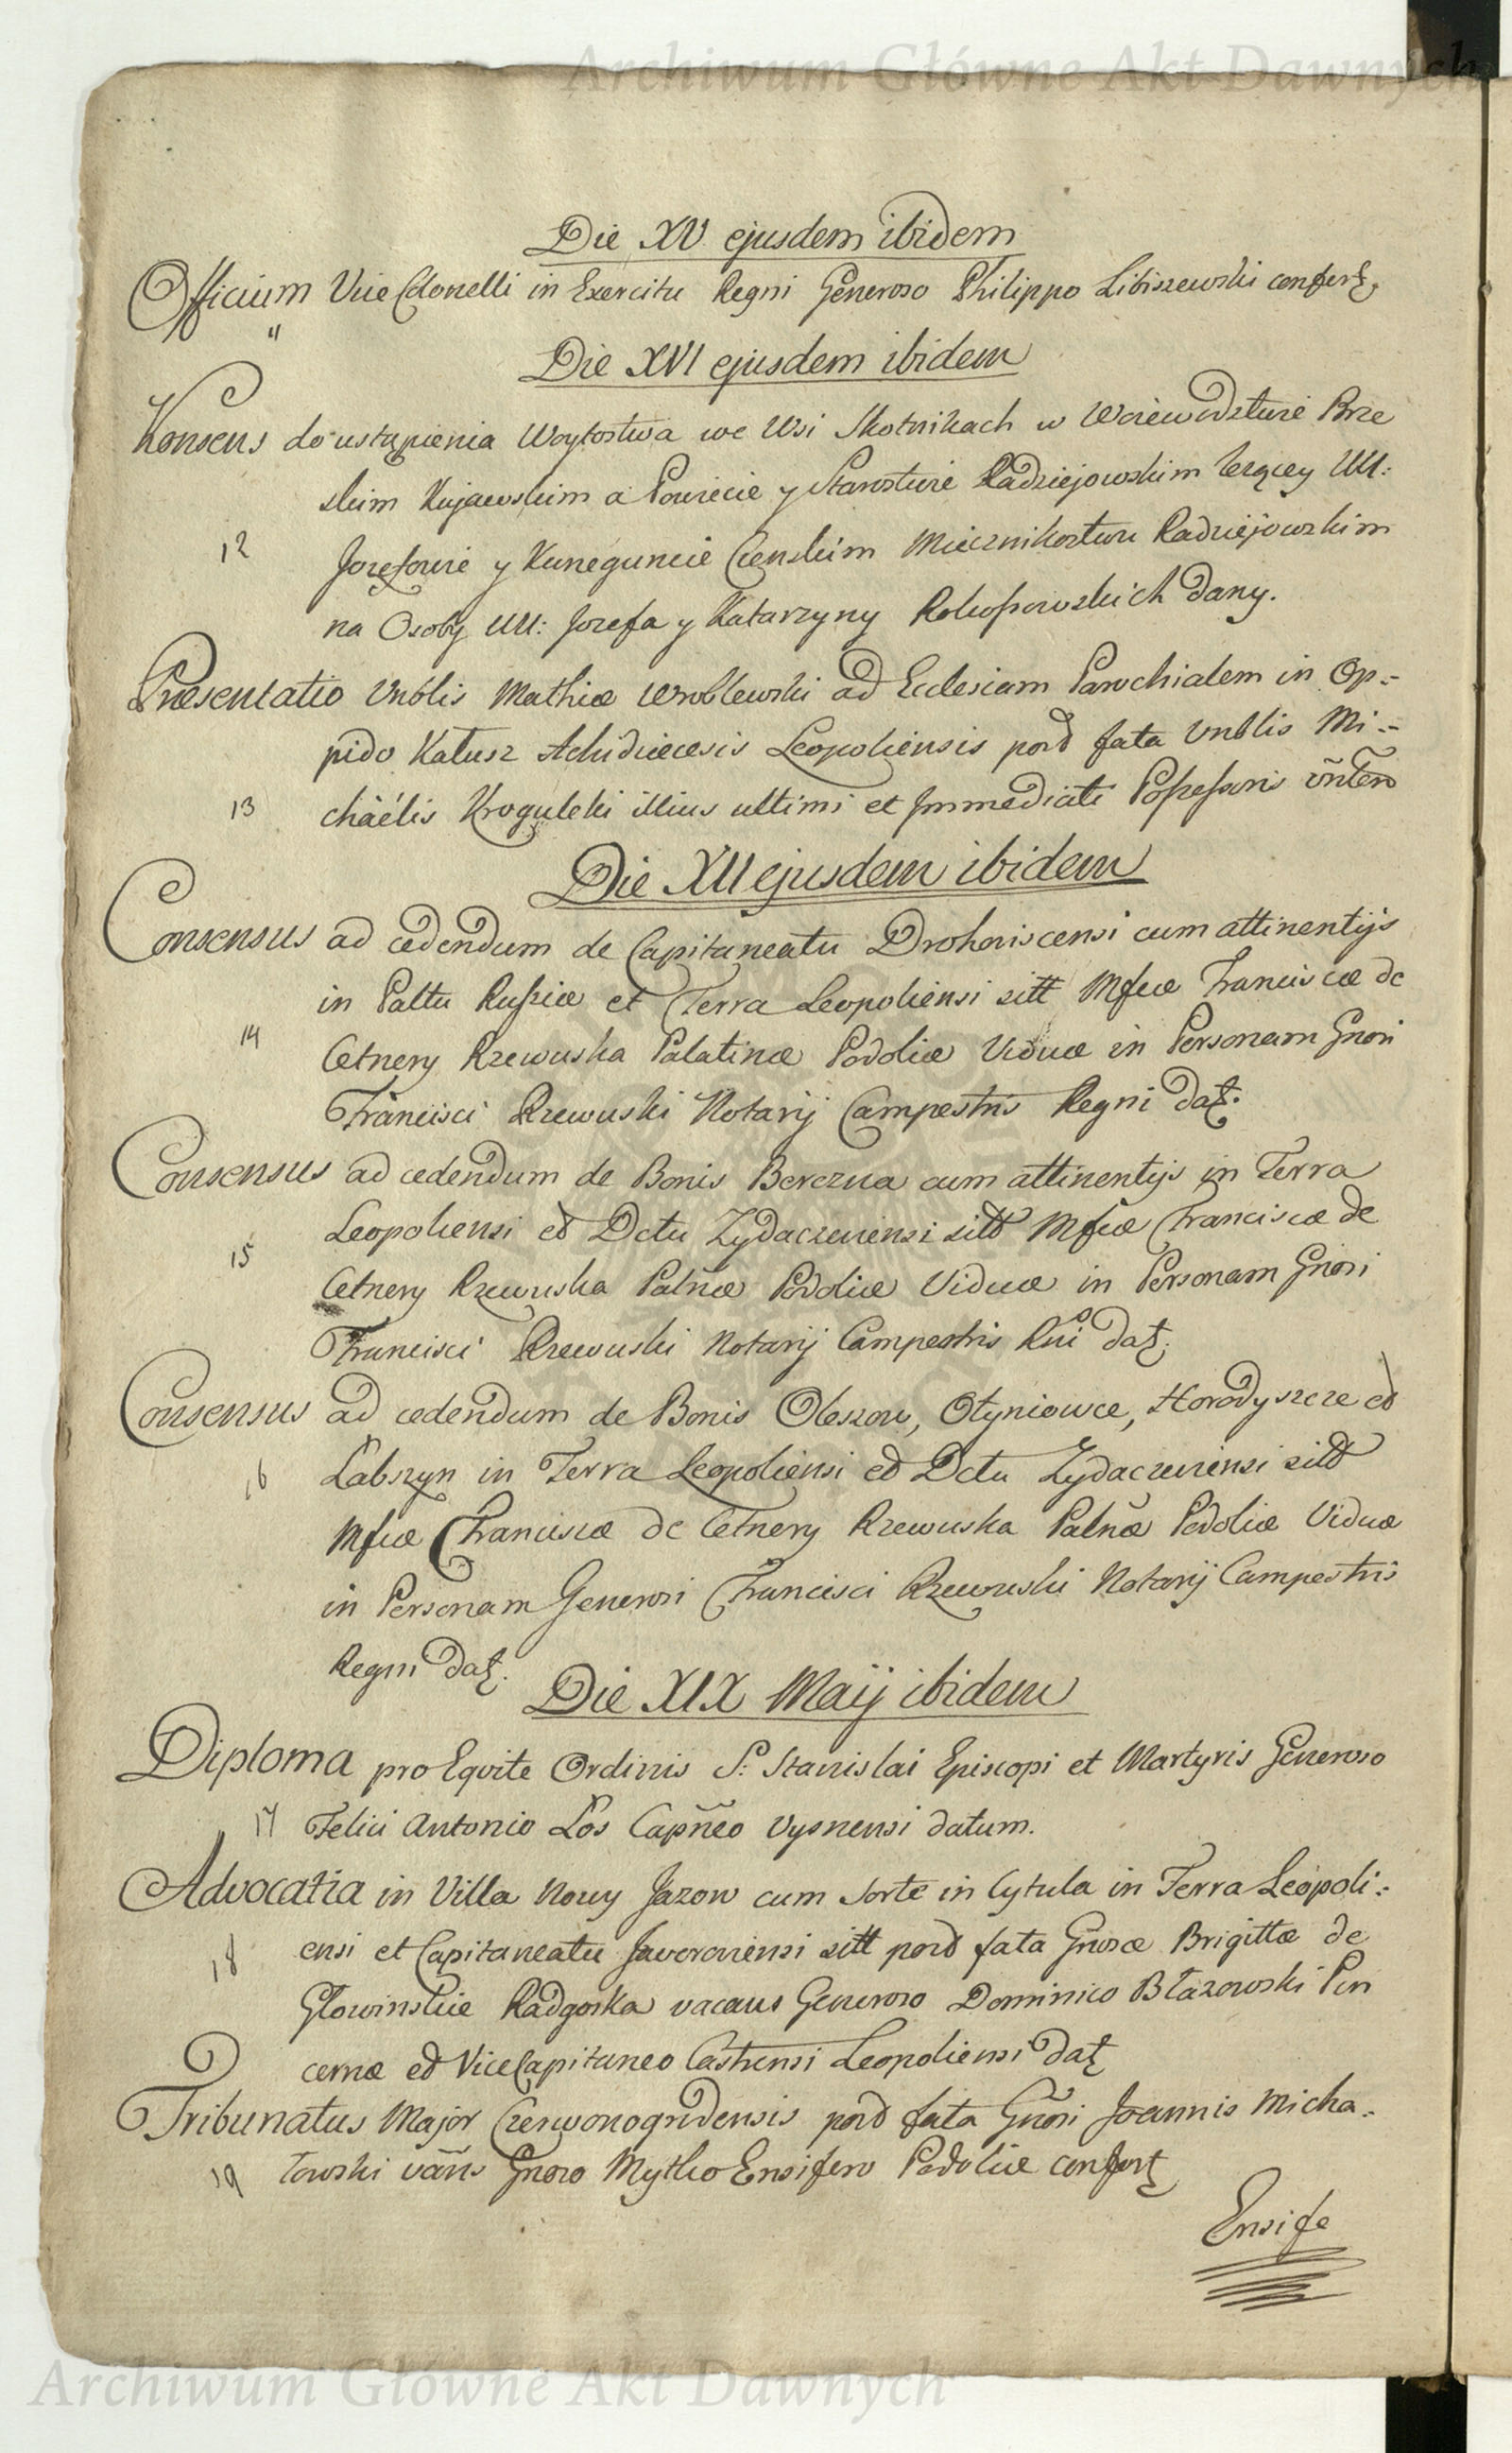 Archiwum Główne Akt Dawnych
Die XV ejusdem ibidem
Officium Vice Colonelli in Exercitu Regni Generoso Philippo Libiszewski confert.
11
Die XVI ejusdem ibidem
Konsens do ustąpienia Woytostwa we Wsi Skotnikach w Woiewodztwie Brze
skim Kujawskim a Powiecie y Starostwie Radziejowskim leżącey UU:
12 Jozefowi y Kunegundzie Miecznikostwu Radziejowskim
na Osoby UU: Jozefa y Katarzyny Rokossowskich dany.
Præsentatio Vnblis Mathiæ Wroblewski ad Ecclesiam Parochialem in Op=
pido Kałusz Achidiecesis Leopoliensis post fata Vnblis Mi=
13 chaëlis Krogulcki illius ultimi et Immediati Possessoris
Die XVII ejusdem ibidem
Consensus ad cedendum de Capitaneatu Drohoviscensi cum attinentijs
in Paltu Russiæ et Terra Leopoliensi sitt Mfcæ Franciscæ de
14 Cetnery Rzewuska Palatinæ Podoliæ Viduæ in Personam Gnori
Francisci Rzewuski Notarij Campestris Regni dat.
Consensus ad cedendum de Bonis Berezna cum attinentijs in Terra
15 Leopoliensi et Dctu Zydaczeviensi sitt Mfcæ Franciscæ de
Cetnery Rzewuska Palnæ Podoliæ Viduæ in Personam Gnori
Francisci Rzewuski Notarij Campestris Rni dat.
Consensus ad cedendum de Bonis Oleszow, Otyniowce, Horodyszcze et
16 Łabszyn in Terra Leopoliensi et Dctu Zydaczeviensi sitt
Mfcæ Franciscæ de Cetnery Rzewuska Palnæ Podoliæ Viduæ
in Personam Generosi Francisci Rzewuski Notarij Campestris
Regni dat.
Die XIX Maij ibidem
Diploma pro Equite Ordinis S: Stanislai Episcopi et Martyris Generoso
17 Felici Antonio Łos Capneo Vysnensi datum.
Advocatia in Villa Nowy Jazow cum sorte in Cytula in Terra Leopoli=
18 ensi et Capitaneatu Javoroviensi sitt post fata Gnosæ Brigittæ de
Głowinskie Radgoska vacans Generoso Dominico Błazowski Pin
cernæ et Vice Capitaneo Castrensi Leopoliensi dat
Tribunatus Major Czerwonogrdensis post fata Gnori Joannis Micha=
19 łowski vans Gnoso Mytko Ensifero Podoliæ confert
Ensife
Archiwum Główne Akt Dawnych